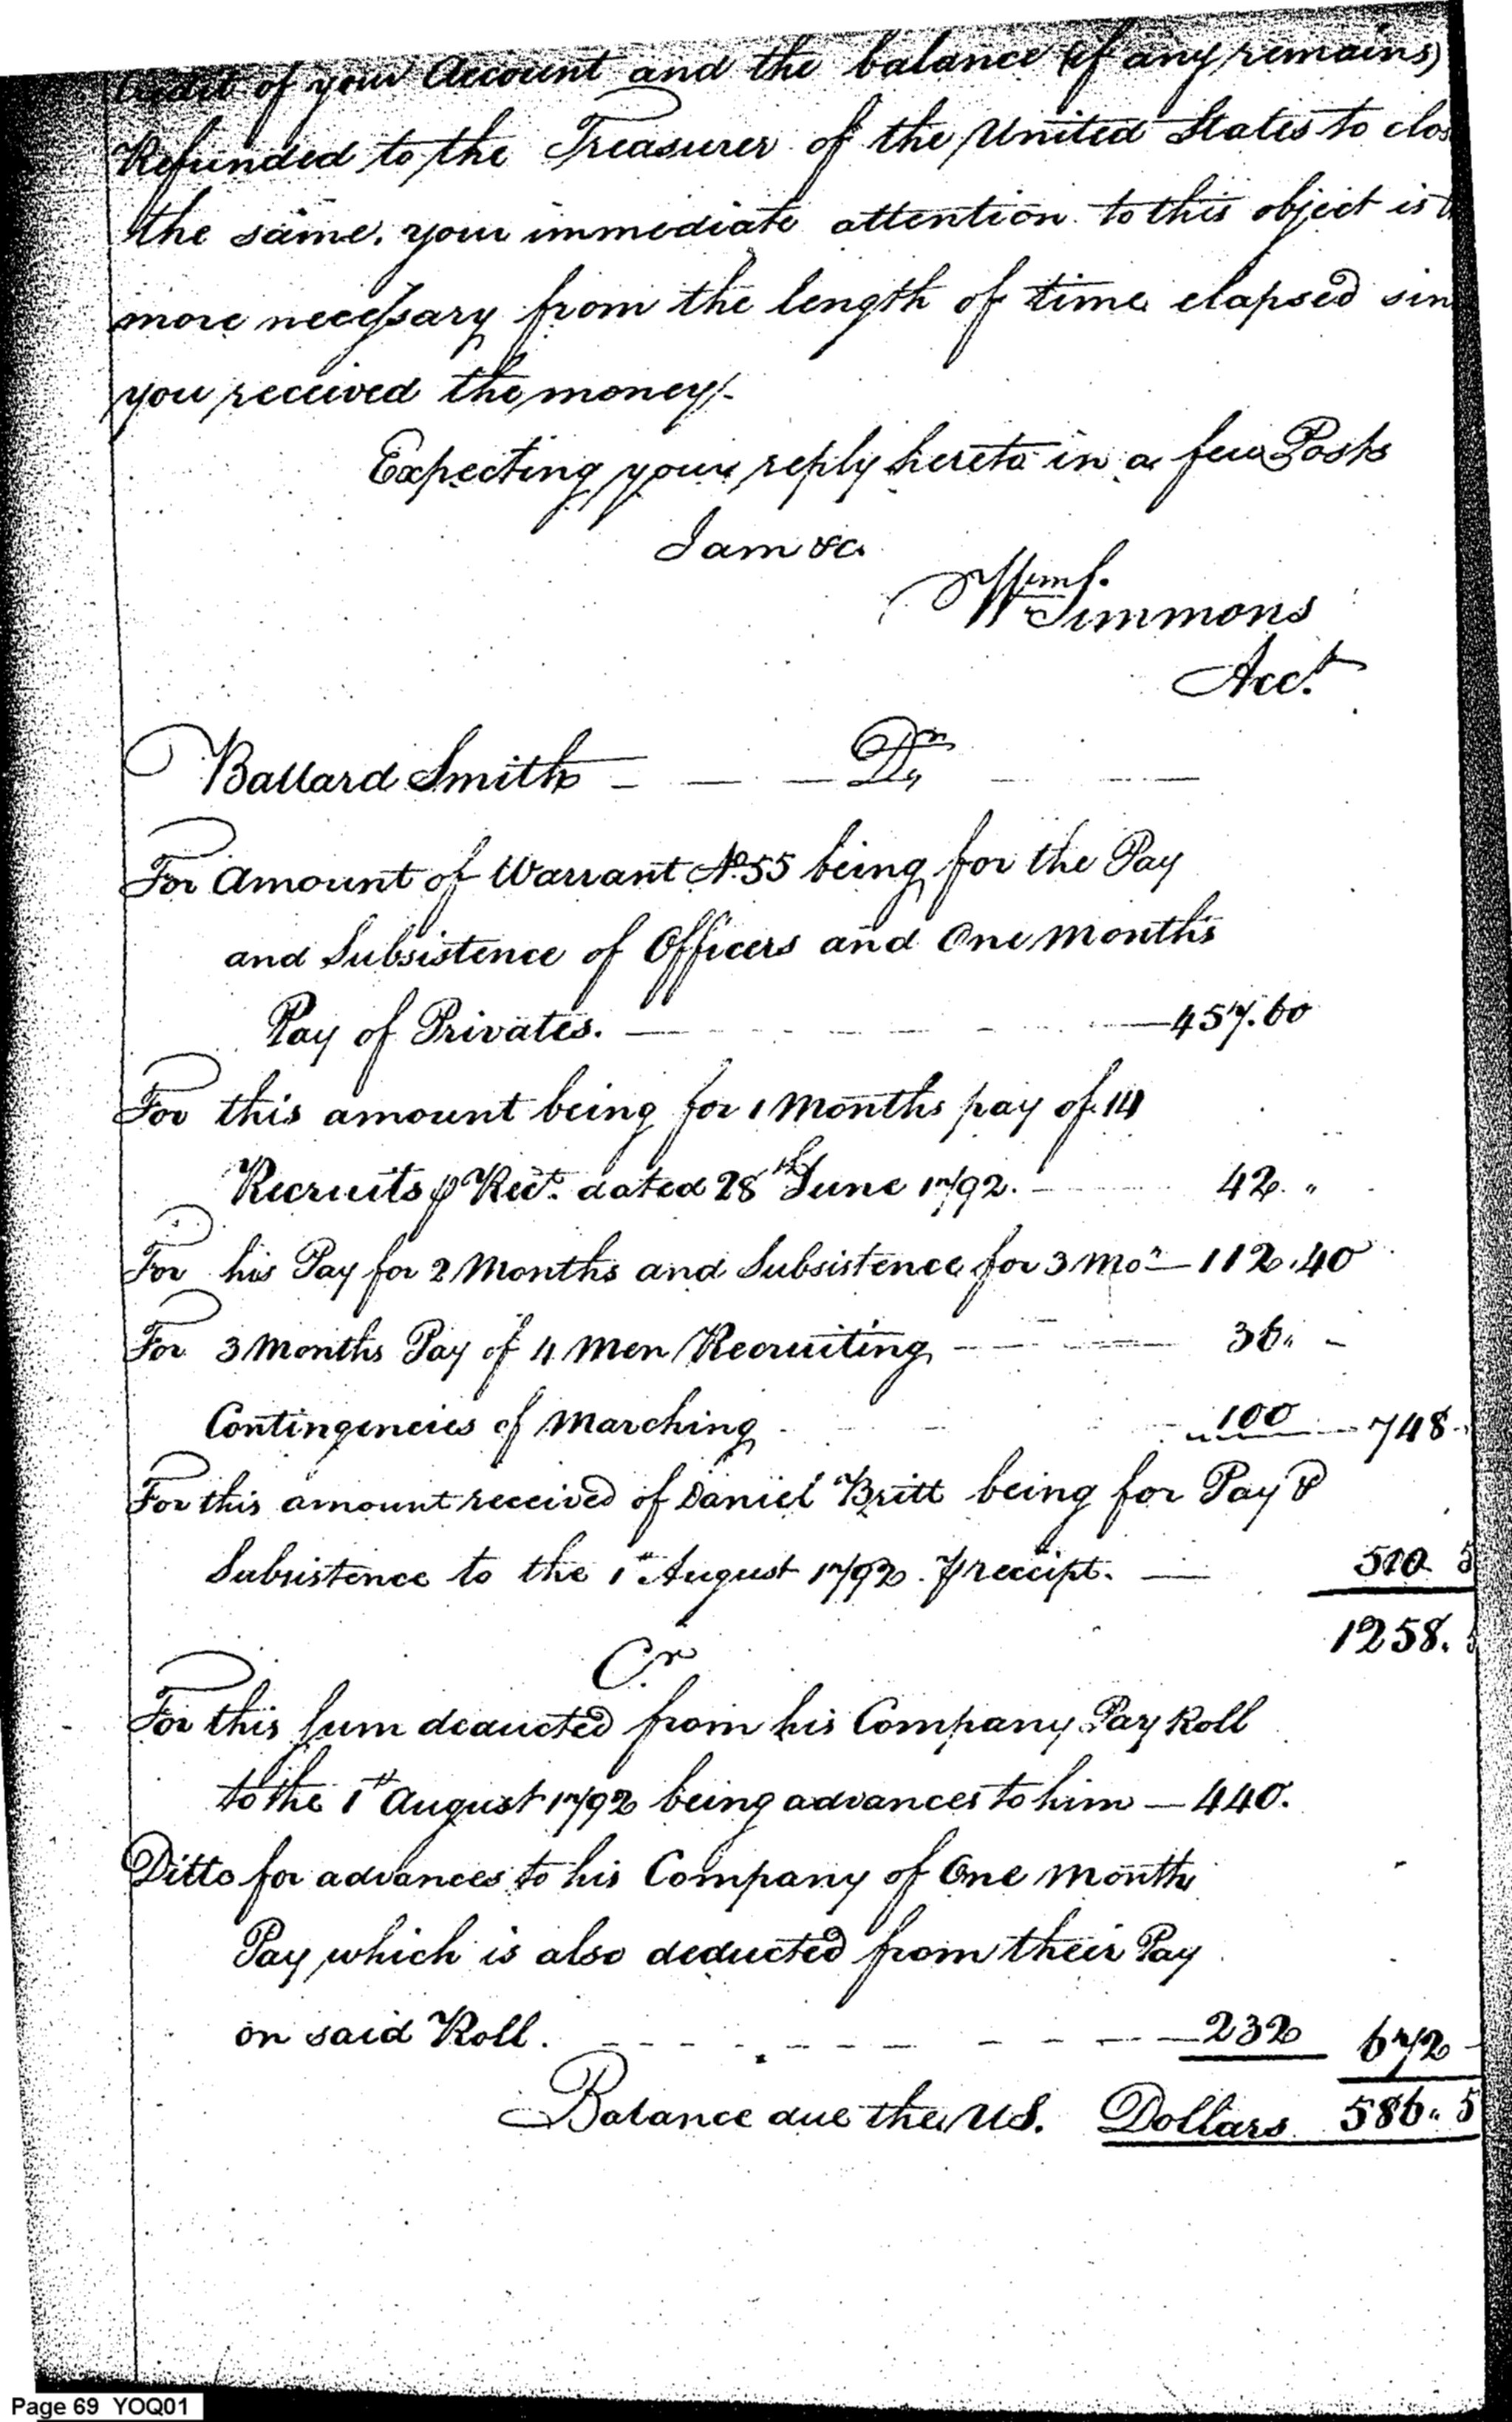 Credit of your Account and the balance (if any remains)
Refunded to the Treasurer of the United States to clos
the same. your immediate attention to this object is
more necessary from the length of time elapsed sin
you received the money.-
Expecting your reply hereto in a few Posts
I am &c.
Wm Simmons
Acct.
Ballard Smith - - - Dr - -
For Amount of Warrant No. 55 being for the Pay
and Subsistence of Officers and One months
Pay of Privates. - - - - - 457.60
For this amount being for 1 Months pay of 14
Recruits ⅌ Rect. dated 28th June 1792. - - - 42. "
For his Pay for 2 Months and Subsistence for 3 mos - 112.40
For 3 Months Pay of 4 Men Recruiting - - - 36. -
Contingencies of Marching - - - 100 - 748.
For this amount received of Daniel Britt being for Pay &
Subsistence to the 1st August 1792. ⅌ receipt. - 510 5
1258. 5
Cr
For this sum deducted from his Company Pay Roll
to the 1st August 1792 being advances to him - 440.
Ditto for advances to his Company of One Months
Pay which is also deducted from their Pay
on said Roll. - - - - - - - 232 672 -
Balance due the US. Dollars 586. 5
Page 69 YOQ01